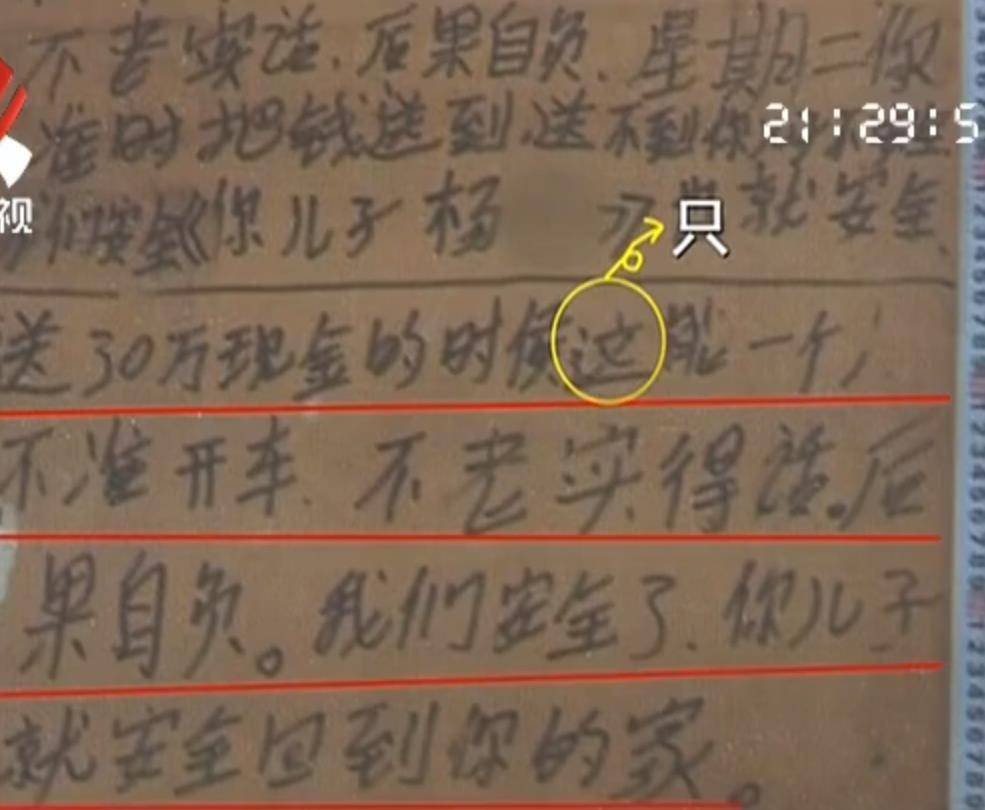 不老实话.后果自负.星期二你
21:29:5
准时把钱送到.送不到你
视
们安全《你儿子杨
只
就安全
送30万现金的时候这能一个人
不准开车.不老实得话。后
果自负。我们安全了.你儿子
就安全回到你的家。